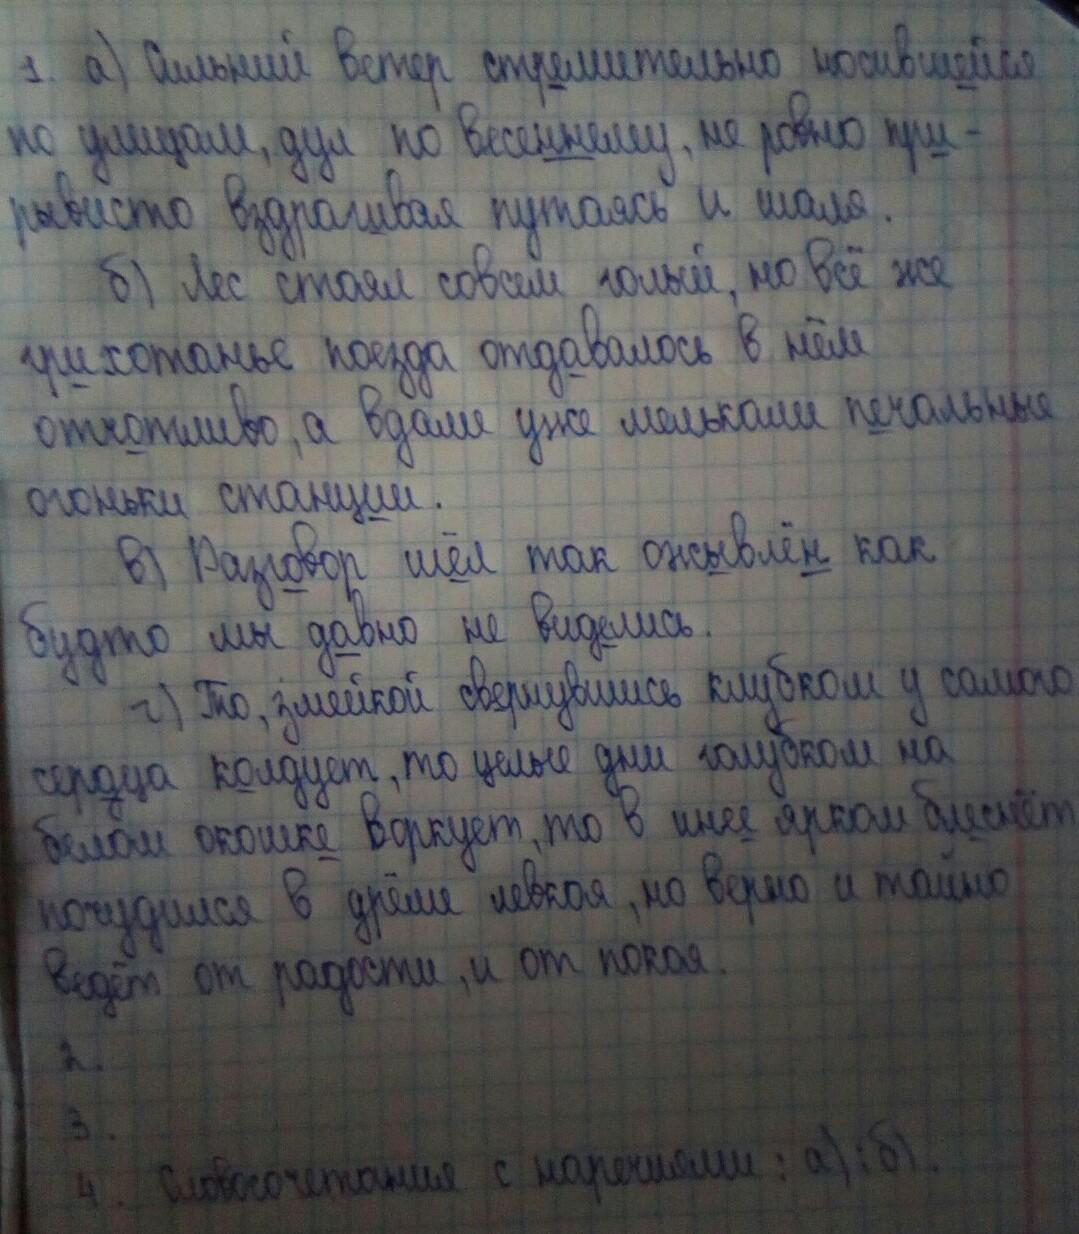 1. а) Сильний ветер стремительно носившейся
по улицам, дул по весеннему, не ровно при-
рывисто вздрагивая путаясь и шаля.
б) Лес стоял совсем голый, но всё же
грихотанье поезда отдавалось в нём
отчотливо, а вдали уже мелькали печальные
огоньки станции.
в) Разговор шёл так ожывлён как
будто мы давно не виделись.
г) То, змейкой свернувшись клубком у самого
сердца колдует, то целые дни голубком на
белом окошке воркует, то в инее ярком блеснёт
почудился в дрёме левкоя, но верно и тайно
ведёт от радости, и от покоя.
2.
3.
4. Словосочетания с наречиями: а); б).